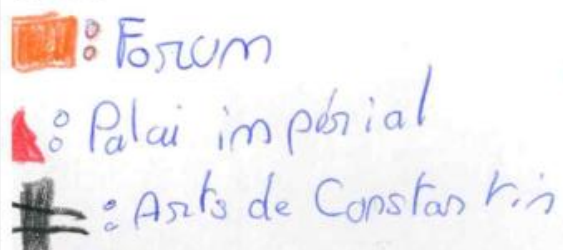 : Forum
: Palai impérial
: Arts de Constantin